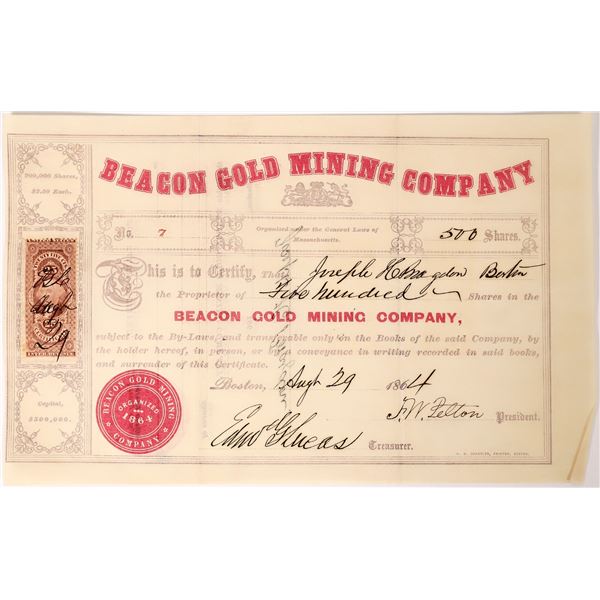 BEACON GOLD MINING COMPANY
200,000 Shares,
$2.50 Each.
No. 7
Organized under the General Laws of
Massachusetts.
500 Shares.
This is to Certify, That Joseph H. Bragdon Boston
the Proprietor of Five Hundred Shares in the
BEACON GOLD MINING COMPANY,
subject to the By-Laws, and transferable only on the Books of the said Company, by
the holder hereof, in person, or by a conveyance in writing recorded in said books,
and surrender of this Certificate.
Boston, Augt 29 1864
F. W. Pelton President.
Edwd G Lucas Treasurer.
Augt
29
Capital,
$500,000.
BEACON GOLD MINING COMPANY
ORGANIZED
1864
PRINTER, BOSTON.